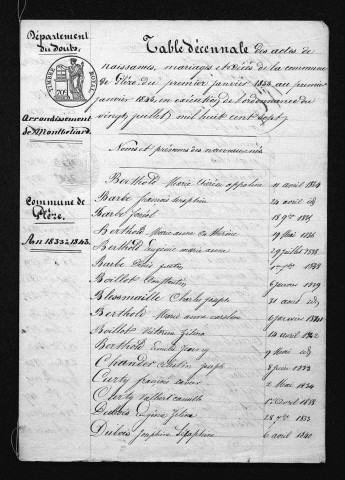 Département
du Doubs.
TIMBRE ROYAL
Arrondissement
de Montbéliard
Commune de
Glère.
An 1833 à 1843.
Table décennale des actes de
naissances, mariages et décès de la commune
de Glère du premier janvier 1833 au premier
janvier 1843, en exécution de l'ordonnance du
vingt juillet mil huit cent sept.
Noms et prénoms des nouveaux nés
Berthold Marie thérèse appoline 11 avril 1834
Barbe françois seraphin 24 avril id
Barbe 18 9bre 1835
Berthold Marie anne catherine 19 Mai 1836
Berthold Eugénie marie anne 29 juillet 1838
Barbe Denis justin 1838
Boillot Constantin 6 janvier 1839
Blessemaille Charles joseph 31 août id
Berthold Marie anne caroline 6 février 1841
Boillot Victorin Zilma 14 avril 1842
Berthold Emile 9 Mai id
Chander Justin joseph 8 juin 1833
Curty françois xavier 2 Mai 1834
Curty Valbert camille 1er avril 1838
Dubois Eugénie Zilma 28 9bre 1833
Dubois Josephine Séraphine 6 avril 1840